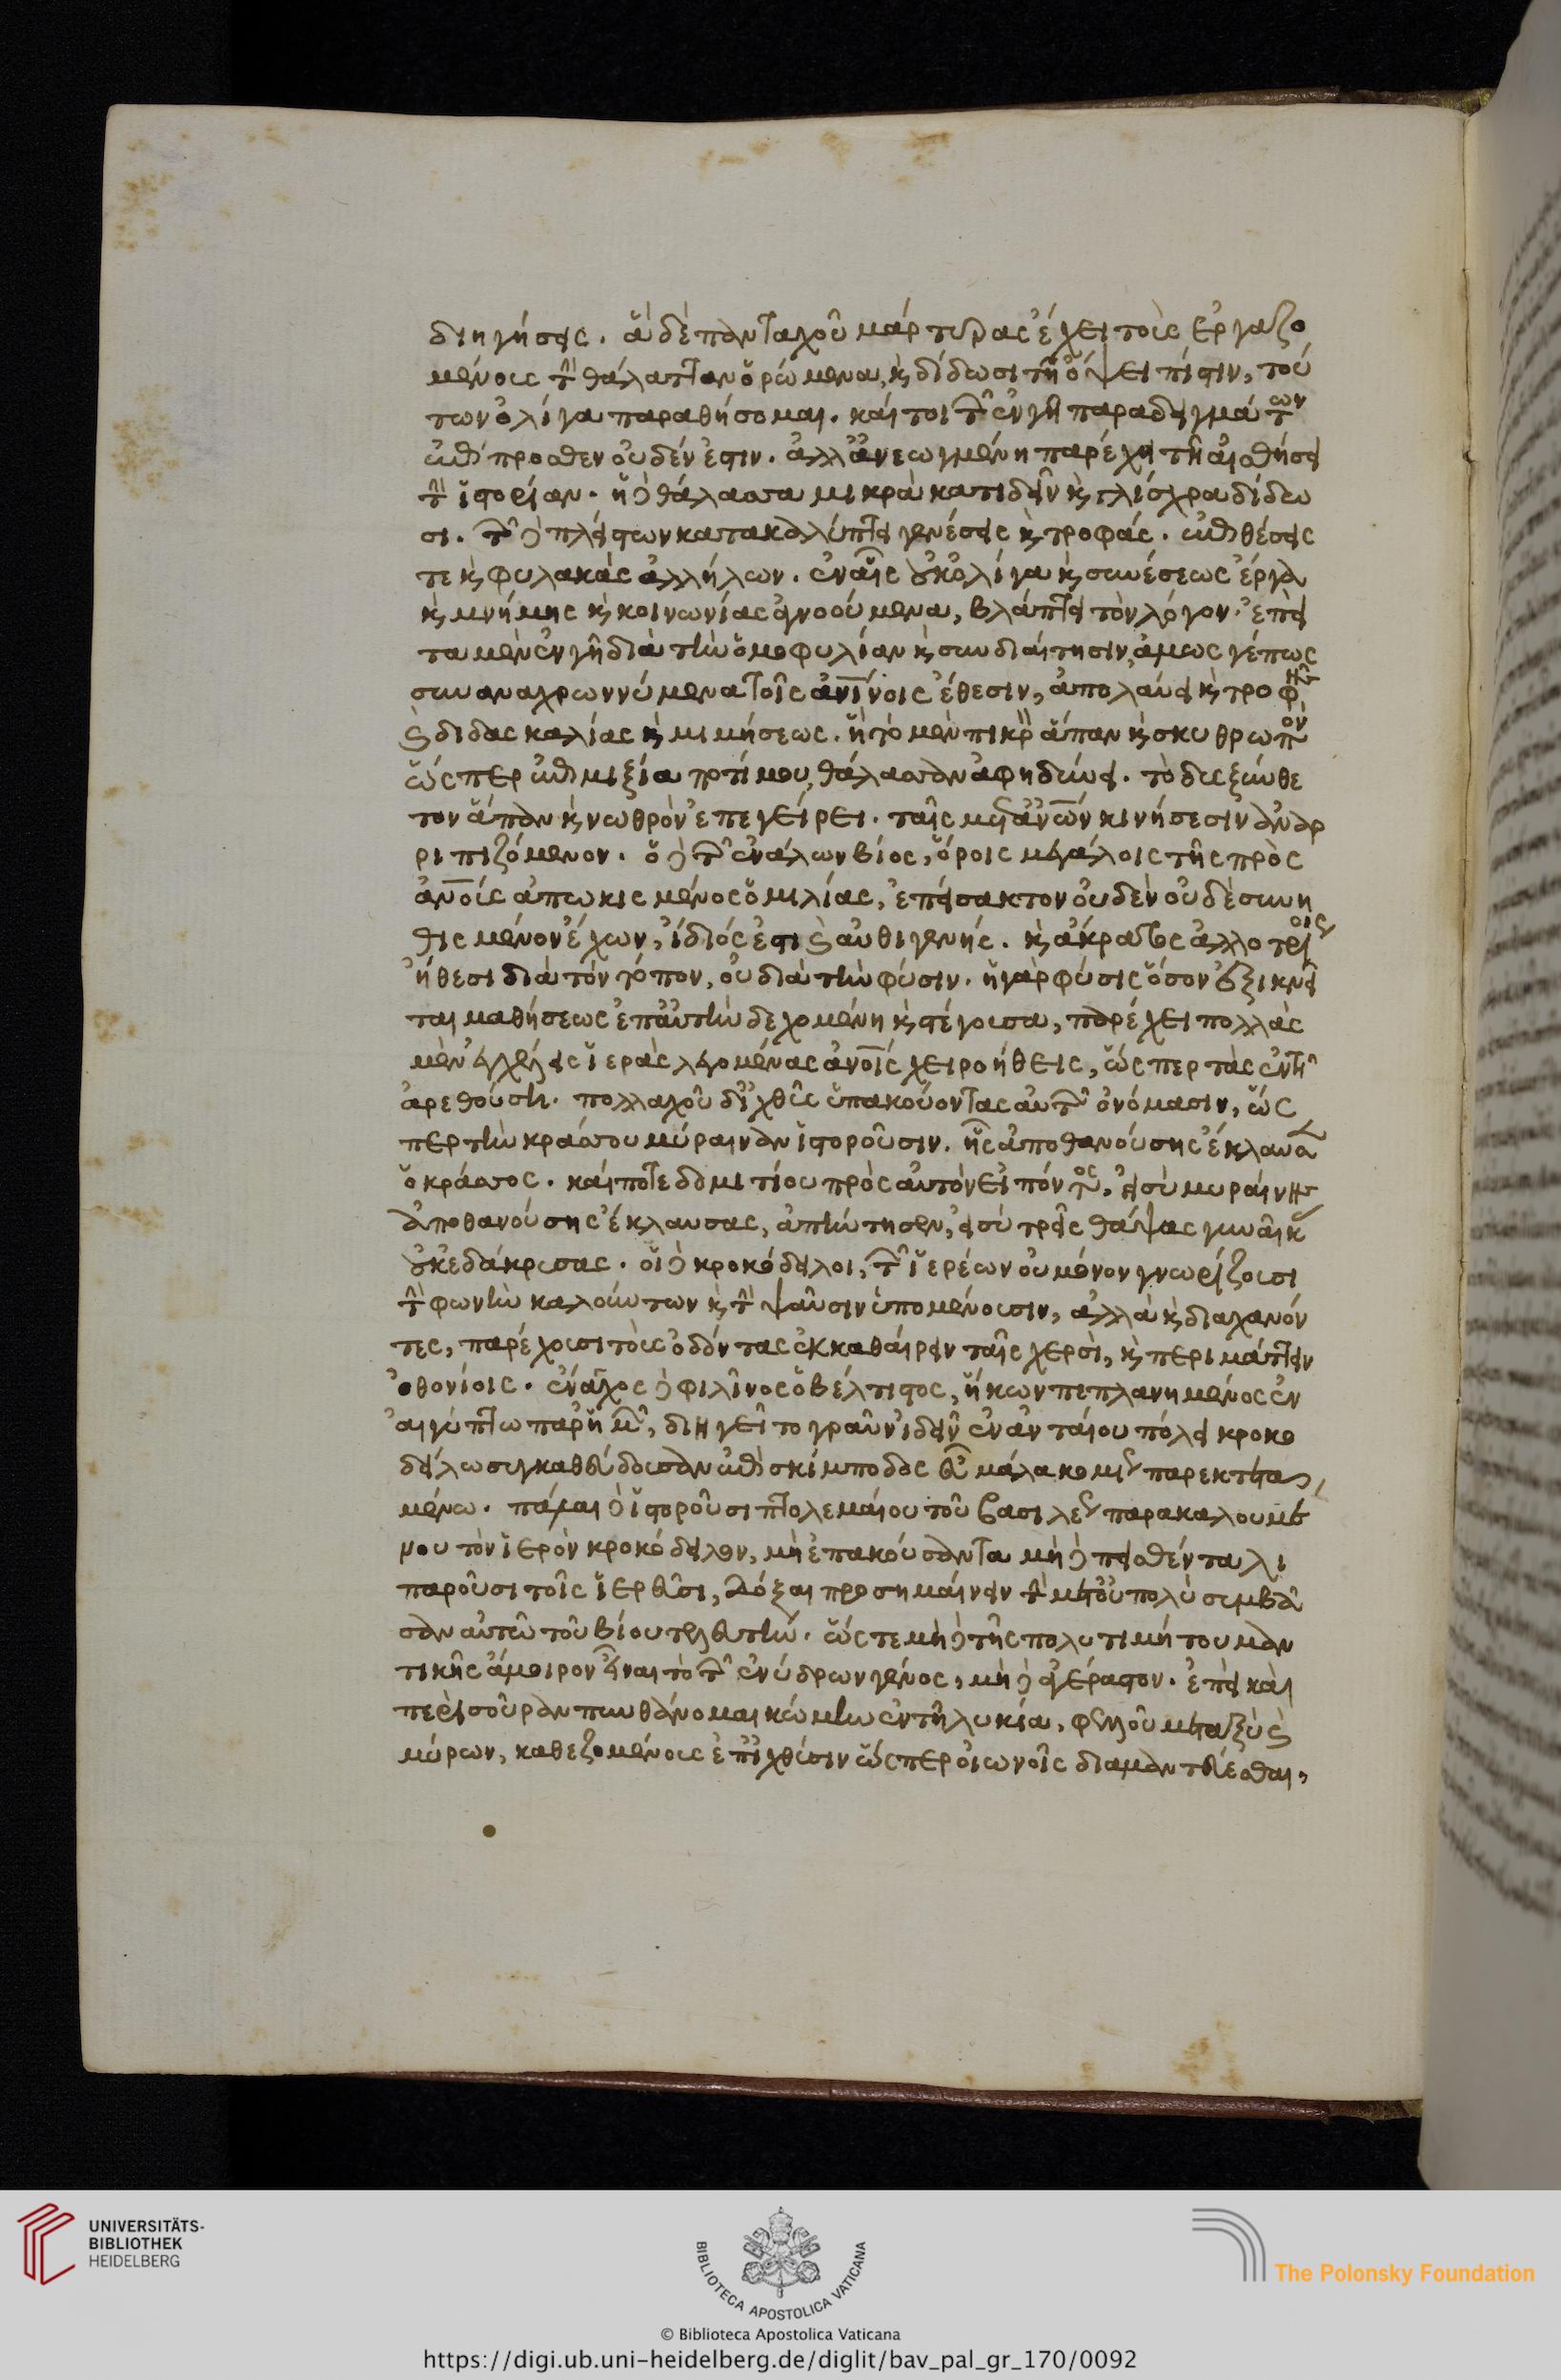 διηγήσεις. ἃ δὲ πανταχοῦ μάρτυρας ἔχει τοὺς ἐργαζο
μένους τὴν θάλατταν ὁρώμενα, καὶ δίδωσι τῇ ὄψει πίστιν, τού
των ὀλίγα παραθήσομαι. καί τοι τῶν ἐν γῇ παραδειγμάτων
ἐπίπροσθεν οὐδέν ἐστιν. ἀλλ' ἀνεωγμένη παρέχει τῇ αἰσθήσει
τὴν ἱστορίαν. ἡ δὲ θάλασσα μικρὰ κατιδεῖν καὶ γλίσχρα δίδω
σι. τῶν δὲ πλείστων κατακαλύπτει γενέσεις καὶ τροφάς. ἐπιθέσεις
τε καὶ φυλακὰς ἀλλήλων. ἐν αἷς οὐκ ὀλίγα καὶ συνέσεως ἔργα
καὶ μνήμης καὶ κοινωνίας ἀγνοούμενα, βλάπτει τὸν λόγον. ἔπει
τα μὲν ἐν γῇ διὰ τὴν ὁμοφυλίαν καὶ συνδιαίτησιν, ἁμῶς γέ πως
συναναχρωννύμενα τοῖς ἀνίνοις ἔθεσιν, ἀπολαύει καὶ τροφῆς
καὶ διδασκαλίας καὶ μιμήσεως. ἣ τὸ μὲν πικρὸν ἅπαν καὶ σκυθρωπὸν
ὥσπερ ἐπιμιξία ποτίμου, θάλασσαν ἀφηδύνει. τὸ δυσξύνε
τον ἅπαν καὶ νωθρὸν ἐπεγείρει. ταῖς μετὰ ἀνων κινήσεσιν ἀναρ
ριπιζόμενον. ὁ δὲ τῶν ἐνάλων βίος, ὅροις μεγάλοις τῆς πρὸς
ἀνους ἀπῳκισμένος ὁμιλίας, ἐπείσακτον οὐδὲν οὐδὲ συνη
θισμένον ἔχων, ἴδιός ἐστι καὶ αὐθιγενής. καὶ ἄκρατος ἀλλοτρίοις
ἤθεσι διὰ τὸν τόπον, οὐ διὰ τὴν φύσιν. ἡ γὰρ φύσις ὅσον ἐξικνεῖ
ται μαθήσεως ἐπ' αὐτὴν δεχομένη καὶ στέγουσα, παρέχει πολλὰς
μὲν ἐγχέλεις ἱερὰς λεγομένας ἀνοις χειροήθεις, ὥσπερ τὰς ἐν τῇ
ἀρεθούσῃ. πολλαχοῦ δ' ἰχθῦς ὑπακούοντας αὐτῶν ὀνόμασιν, ὥς
περ τὴν κράσσου μύραιναν ἱστοροῦσιν. ἧς ἀποθανούσης ἔκλαυσεν
ὁ κράσσος. καί ποτε δομιτίου πρὸς αὐτὸν εἰπόντος, οὐ σὺ μυραίνης
ἀποθανούσης ἔκλαυσας, ἀπήντησεν, οὐ σὺ τρεῖς θάψας γυναῖκας
οὐκ ἐδάκρυσας. οἱ δὲ κροκόδειλοι, τῶν ἱερέων οὐ μόνον γνωρίζουσι
τὴν φωνὴν καλούντων καὶ τὴν ψαῦσιν ὑπομένουσιν, ἀλλὰ καὶ διαχανόν
τες, παρέχουσι τοὺς ὀδόντας ἐκκαθαίρειν ταῖς χερσὶ, καὶ περιμάττειν
ὀθονίοις. ἔναγχος δὲ φιλῖνος ὁ βέλτιστος, ἥκων πεπλανημένος ἐν
αἰγύπτῳ παρ' ἡμῖν, διηγεῖτο γραῦν ἰδεῖν ἐν ἀνταίου πόλει κροκο
δείλῳ συγκαθεύδουσαν ἐπὶ σκίμποδος εὖ μάλα κοσμίως παρεκτεταμένῳ,
μένῳ. πάλαι δὲ ἱστοροῦσι πτολεμαίου τοῦ βασιλέως παρακαλουμέ
μου τὸν ἱερὸν κροκόδειλον, μὴ ἐπακούσαντα μὴ δὲ πεισθέντα λι
παροῦσι τοῖς ἱερεῦσι, δόξαι προσημαίνειν τὴν μετ' οὐ πολὺ συμβᾶ
σαν αὐτῷ τοῦ βίου τελευτήν. ὥστε μὴ δὲ τῆς πολυτιμήτου μαν
τικῆς ἄμοιρον εἶναι τὸ τῶν ἐνύδρων γένος, μὴ δὲ ἀγέραστον. ἐπεὶ καὶ
περὶ σοῦραν πυνθάνομαι κώμην ἐν τῇ λυκίᾳ, φελλοῦ μεταξὺ καὶ
μύρων, καθεζομένους ἐπ' ἰχθύσιν ὥσπερ οἰωνοῖς διαμαντεύεσθαι,
UNIVERSITÄTS-
BIBLIOTHEK
HEIDELBERG
BIBLIOTECA APOSTOLICA VATICANA
The Polonsky Foundation
© Biblioteca Apostolica Vaticana
https://digi.ub.uni-heidelberg.de/diglit/bav_pal_gr_170/0092